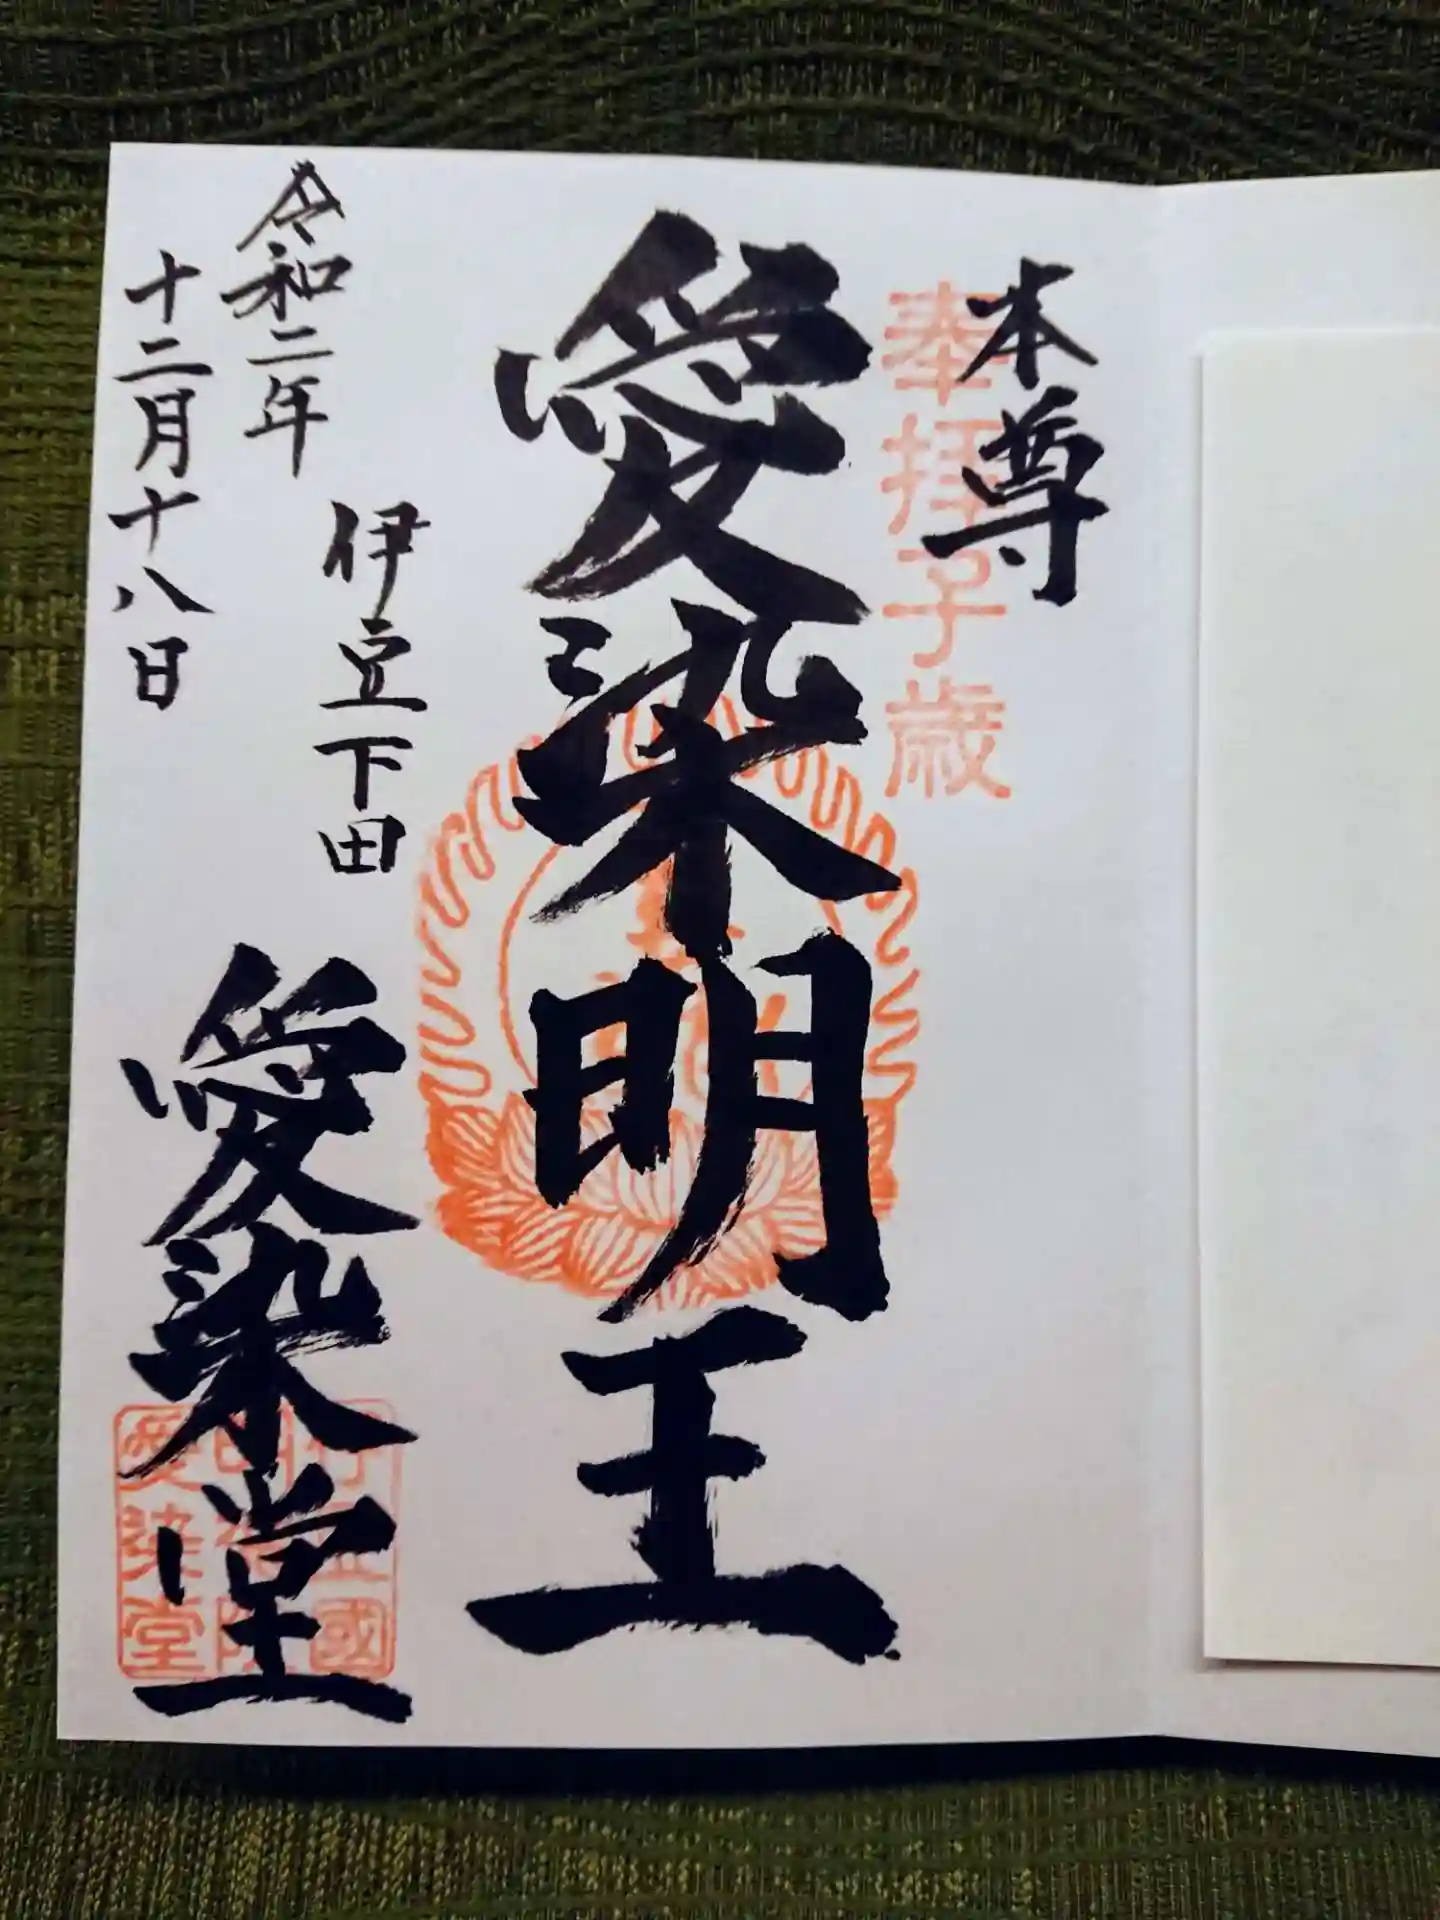 本尊
奉拝子歳
愛染明王
伊豆下田
愛染堂
令和二年
十二月十八日
愛染堂